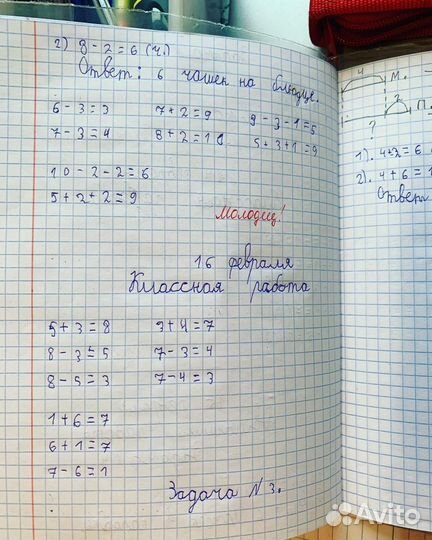 2) 8 - 2 = 6 (ч.)
Ответ: 6 чашек на блюдце.
6 - 3 = 3   7 + 2 = 9   9 - 3 - 1 = 5
7 - 3 = 4   8 + 2 = 10   5 + 3 + 1 = 9
10 - 2 - 2 = 6
5 + 2 + 2 = 9
Молодец!
16 февраля
Классная работа
5 + 3 = 8   3 + 4 = 7
8 - 3 = 5   7 - 3 = 4
8 - 5 = 3   7 - 4 = 3
1 + 6 = 7
6 + 1 = 7
7 - 6 = 1
Задача N 3.
4 М.
2 П.
?
1). 4 + 2 = 6
2). 4 + 6 = 1
Ответ
Avito